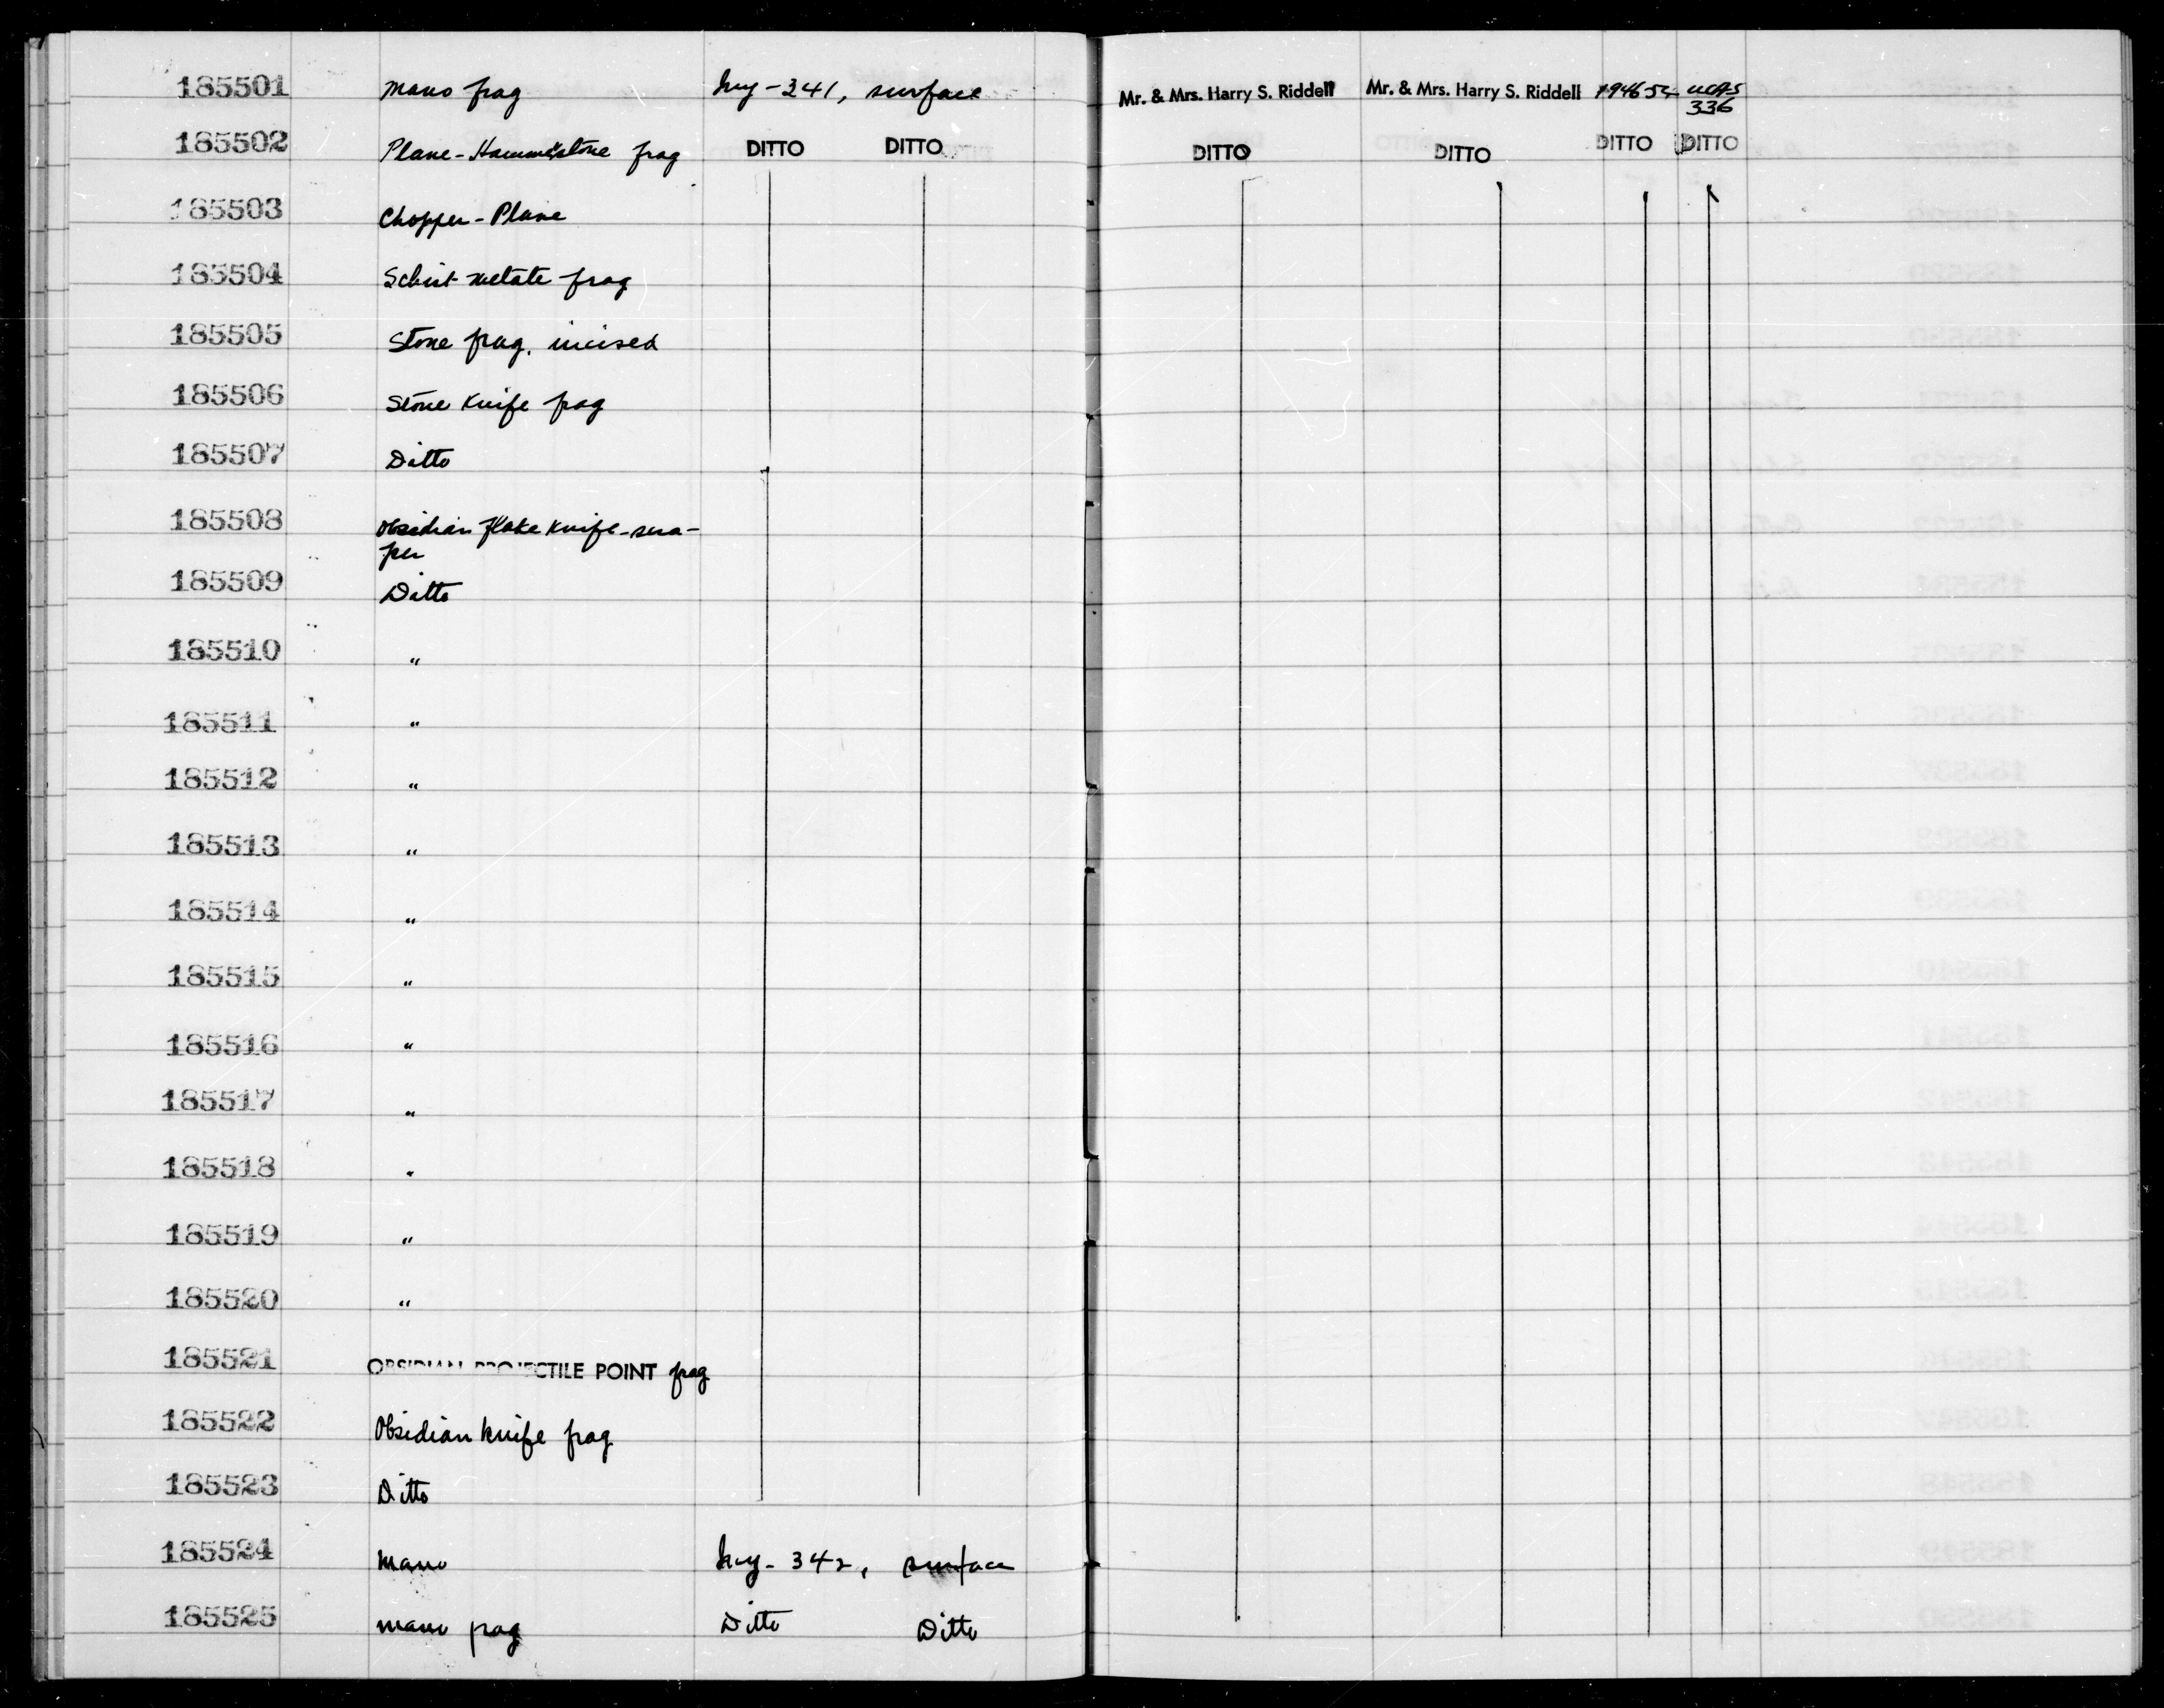 185501 Mano frag Iny-341, surface Mr. & Mrs. Harry S. Riddell Mr. & Mrs. Harry S. Riddell 1946-54 UCAS
336
185502 Plane-Hammerstone frag DITTO DITTO DITTO DITTO DITTO DITTO
185503 Chopper-Plane
185504 Schist metate frag
185505 Stone frag, incised
185506 Stone Knife frag
185507 Ditto
185508 Obsidian flake knife-scra-
per
185509 Ditto
185510 "
185511 "
185512 "
185513 "
185514 "
185515 "
185516 "
185517 "
185518 "
185519 "
185520 "
185521 OBSIDIAN PROJECTILE POINT frag
185522 Obsidian knife frag
185523 Ditto
185524 Mano Iny-342, surface
185525 mano frag Ditto Ditto